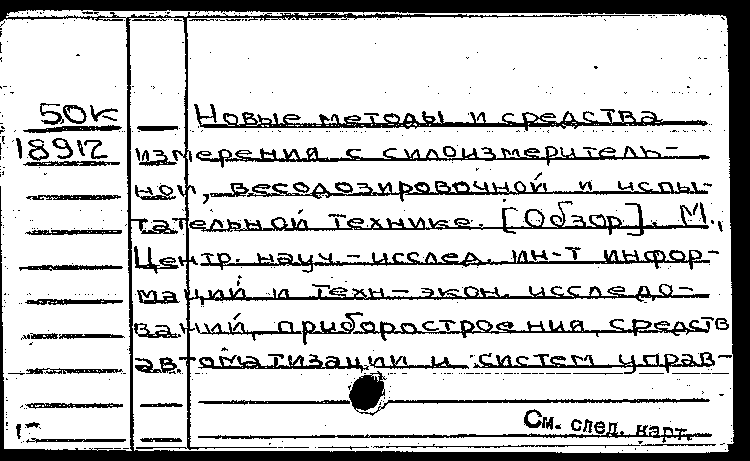 50к
18912
Новые методы и средства
измерения с силоизмеритель-
ной, весодозировочной и испы-
тательной технике. [Обзор]. М.,
Центр. науч.-исслед. ин-т инфор-
маций и техн-экон. исследо-
ваний, приборостроения, средств
автоматизации и систем управ-
См. след. карт.